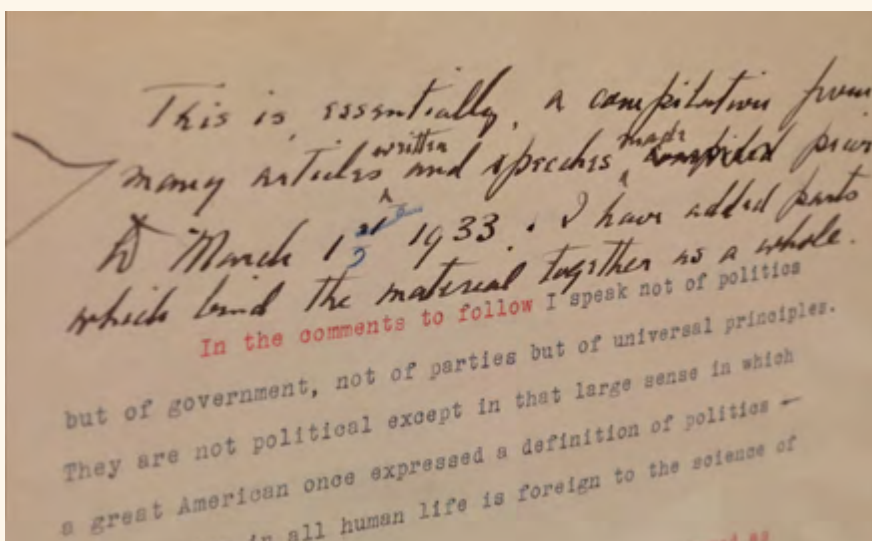 This is, essentially, a compilation from
many articles written and speeches made compiled prior
to March 1st 1933. I have added parts
which bind the material together as a whole.
In the comments to follow I speak not of politics
but of government, not of parties but of universal principles.
They are not political except in that large sense in which
a great American once expressed a definition of politics —
in all human life is foreign to the science of
as